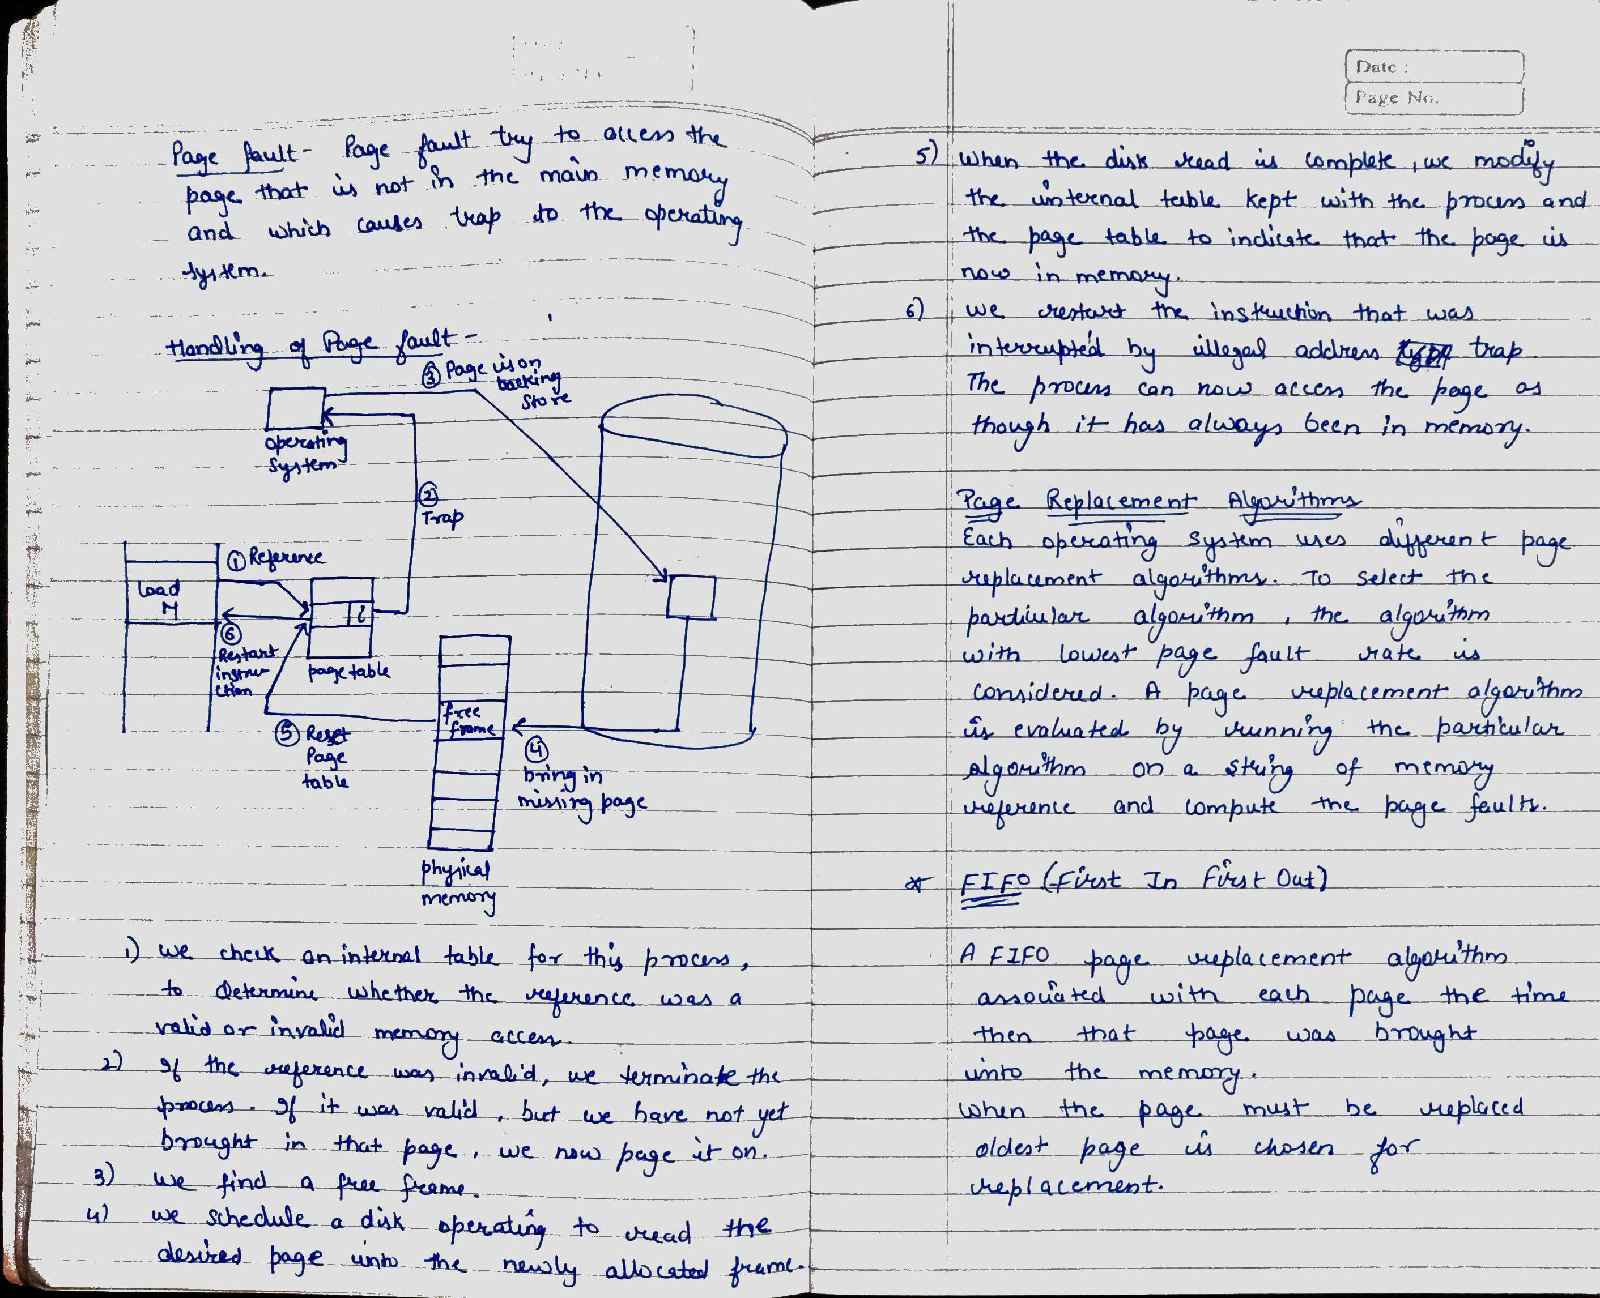 Page fault - Page fault try to access the
page that is not in the main memory
and which causes trap to the operating
system.
Handling of Page fault -
③ Page is on
backing
store
operating
system
②
Trap
① Reference
load
M
i
⑥
Restart
instru-
ction
page table
free
frame
⑤ Reset
Page
table
④
bring in
missing page
physical
memory
1) we check an internal table for this process,
to determine whether the reference was a
valid or invalid memory access.
2) If the reference was invalid, we terminate the
process. If it was valid, but we have not yet
brought in that page, we now page it on.
3) we find a free frame.
4) we schedule a disk operating to read the
desired page into the newly allocated frame.
Date :
Page No.
5) When the disk read is complete, we modify
the internal table kept with the process and
the page table to indicate that the page is
now in memory.
6) we restart the instruction that was
interrupted by illegal address trap
The process can now access the page as
though it has always been in memory.
Page Replacement Algorithms
Each operating system uses different page
replacement algorithms. To select the
particular algorithm, the algorithm
with lowest page fault rate is
considered. A page replacement algorithm
is evaluated by running the particular
algorithm on a string of memory
reference and compute the page faults.
* FIFO (First In First Out)
A FIFO page replacement algorithm
associated with each page the time
then that page was brought
into the memory.
when the page must be replaced
oldest page is chosen for
replacement.